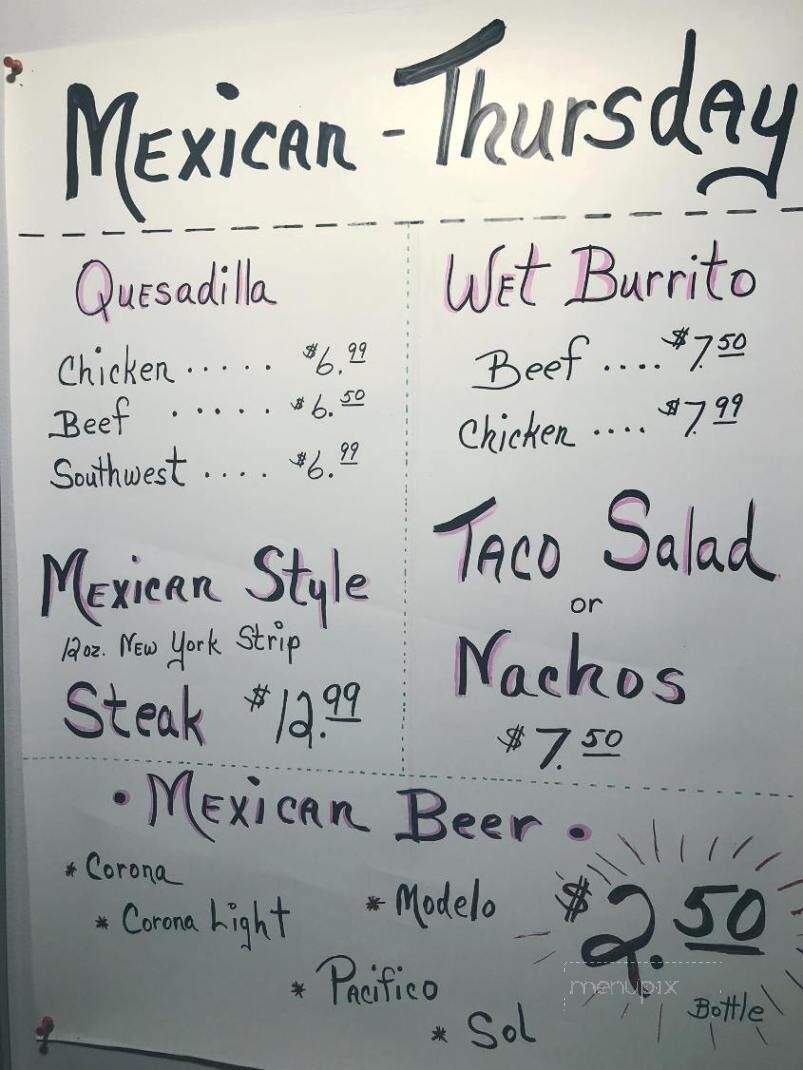 Mexican - Thursday
Quesadilla
Chicken ..... $6.99
Beef ..... $6.50
Southwest .... $6.99
Wet Burrito
Beef .... $7.50
Chicken .... $7.99
Mexican Style
12oz. New York Strip
Steak $12.99
Taco Salad
or
Nachos
$7.50
• Mexican Beer •
* Corona
* Corona Light
* Modelo
* Pacifico
* Sol
$2.50
Bottle
menupix